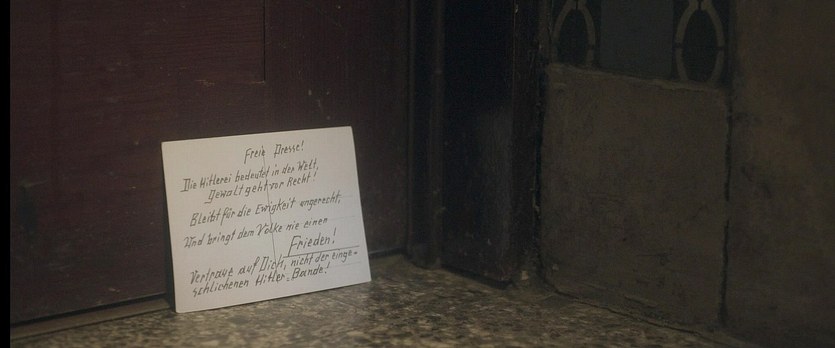 Freie Presse!
Die Hitlerei bedeutet in der Welt,
Gewalt geht vor Recht!
Bleibt für die Ewigkeit ungerecht,
Und bringt dem Volke nie einen
Frieden!
Vertraue auf Dich, nicht der einge-
schlichenen Hitler-Bande!